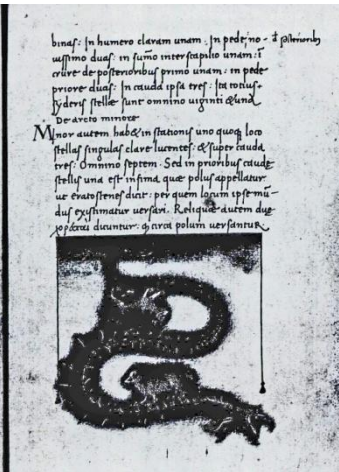 binas: In humero claram unam. In pede no-
uissimo duas: in sumo interscapilio unam: ī
crure de posterioribus primo unam: in pede
priore duas: In cauda ipsa tres: Ita totius
syderis stelle sunt omnino uiginti & una
De arcto minore
Minor autem hab& in stationis uno quoq; loco
stellas singulas clare lucentes: & super cauda
tres: Omnino septem. Sed in prioribus caude
stellis una est infima, quae polus appellatur
ut eratostenes dicit: per quem locum ipse mū
dus existimatur uersari. Reliquae autem due
dicuntur: q circa polum uersantur